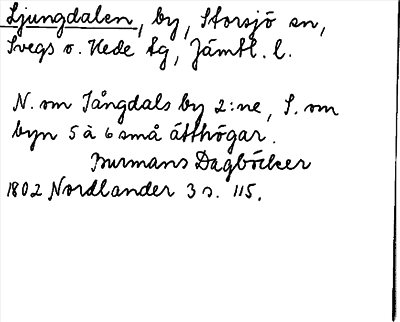 Ljungdalen, by, Storsjö sn,
Svegs o. Hede tg, Jämtl. l.
N. om Jångdals by 2:ne, S. om
byn 5 à 6 små ätthögar.
Burmans Dagböcker
1802 Nordlander 3 s. 115.